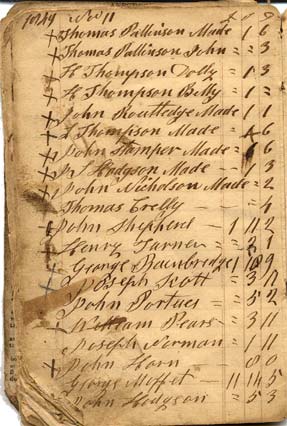 1049 Nov 11
Thomas Pattinson Made 1 6
Thomas Pattinson John = 3
H Thompson Dolly 1 3
H Thompson Betty 1 =
John Routledge Made 1 1
Thompson Made 6
John Stamper Made = 6
Hodgson Made 1 3
John Nicholson Made = 2
Thomas = 4
John Shepherd 1 11 2
Henry Turner = 2 1
George Bainbridge
Joseph Scott = 3
John Portues = 5 2
William Pears 3 11
Joseph Norman 1 11
John Horn 8 0
George Moffet 11 14 5
John Hodgson = 5 3